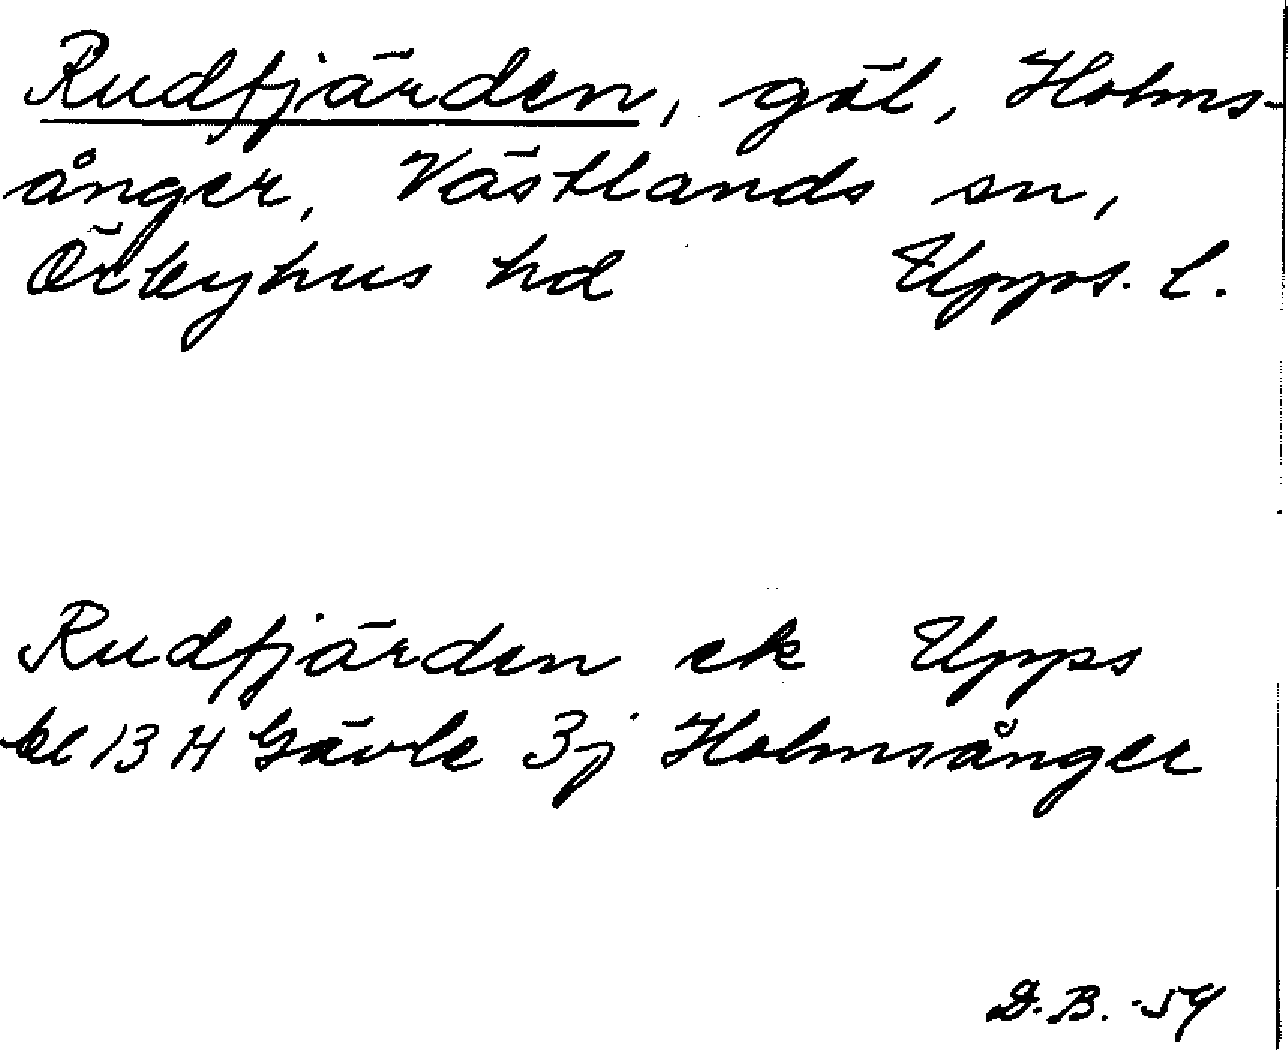 Rudfjärden, göl, Holms-
ånger, Västlands sn,
Örbyhus hd Upps. l.
Rudfjärden ek Upps
bl 13 H Gävle 3j Holmsånger
D.B. -59